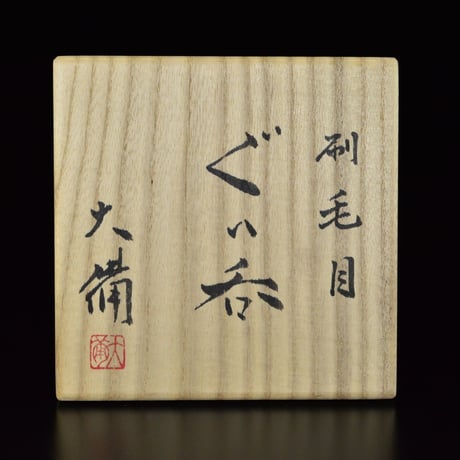 刷毛目
ぐい呑
大備